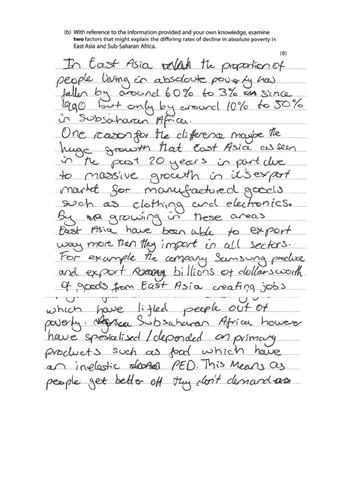 (b) With reference to the information provided and your own knowledge, examine
two factors that might explain the differing rates of decline in absolute poverty in
East Asia and Sub-Saharan Africa.
(8)
In East Asia the proportion of
people living in absolute poverty has
fallen by around 60% to 3% since
1990 but only by around 10% to 50%
in Subsaharan Africa.
One reason for the difference maybe the
huge growth that East Asia as seen
in the past 20 years in part due
to massive growth in its export
market for manufactured goods
such as clothing and electronics.
By growing in these areas
East Asia have been able to export
way more then they import in all sectors.
For example the company Samsung produce
and export billions of dollars worth
of goods from East Asia creating jobs
which have lifted people out of
poverty. Subsaharan Africa however
have spesialised / depended on primary
products such as food which have
an inelastic PED. This Means as
people get better off they don't demand